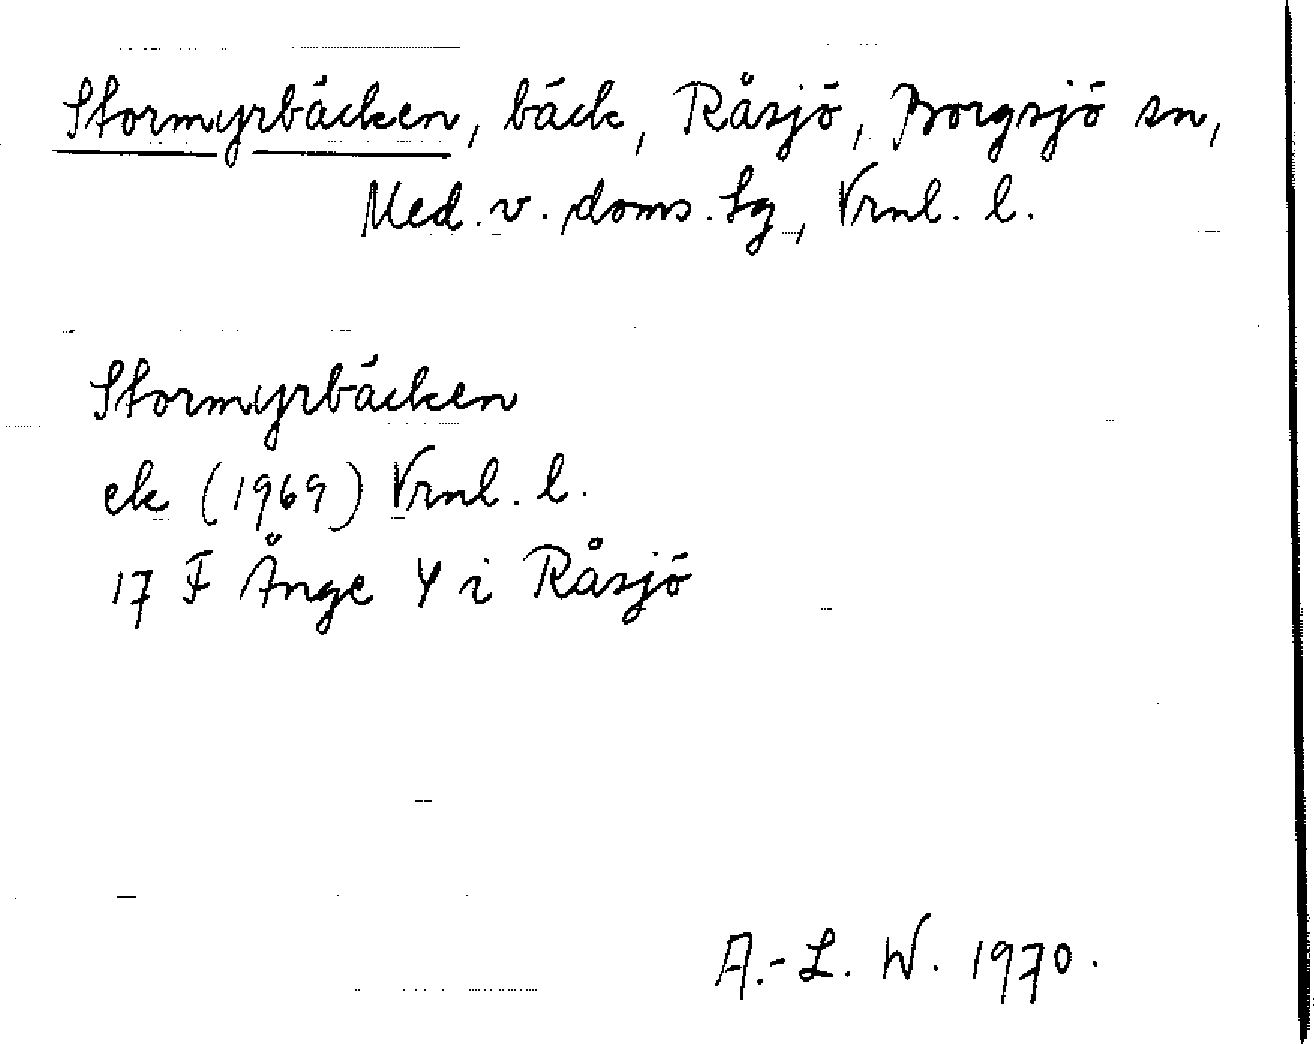 Stormyrbäcken, bäck, Råsjö, Borgsjö sn,
Med. v. doms. tg, Vrnl. l.
Stormyrbäcken
ek (1969) Vrnl. l.
17 F Ånge Y i Råsjö
A.-L. W. 1970.